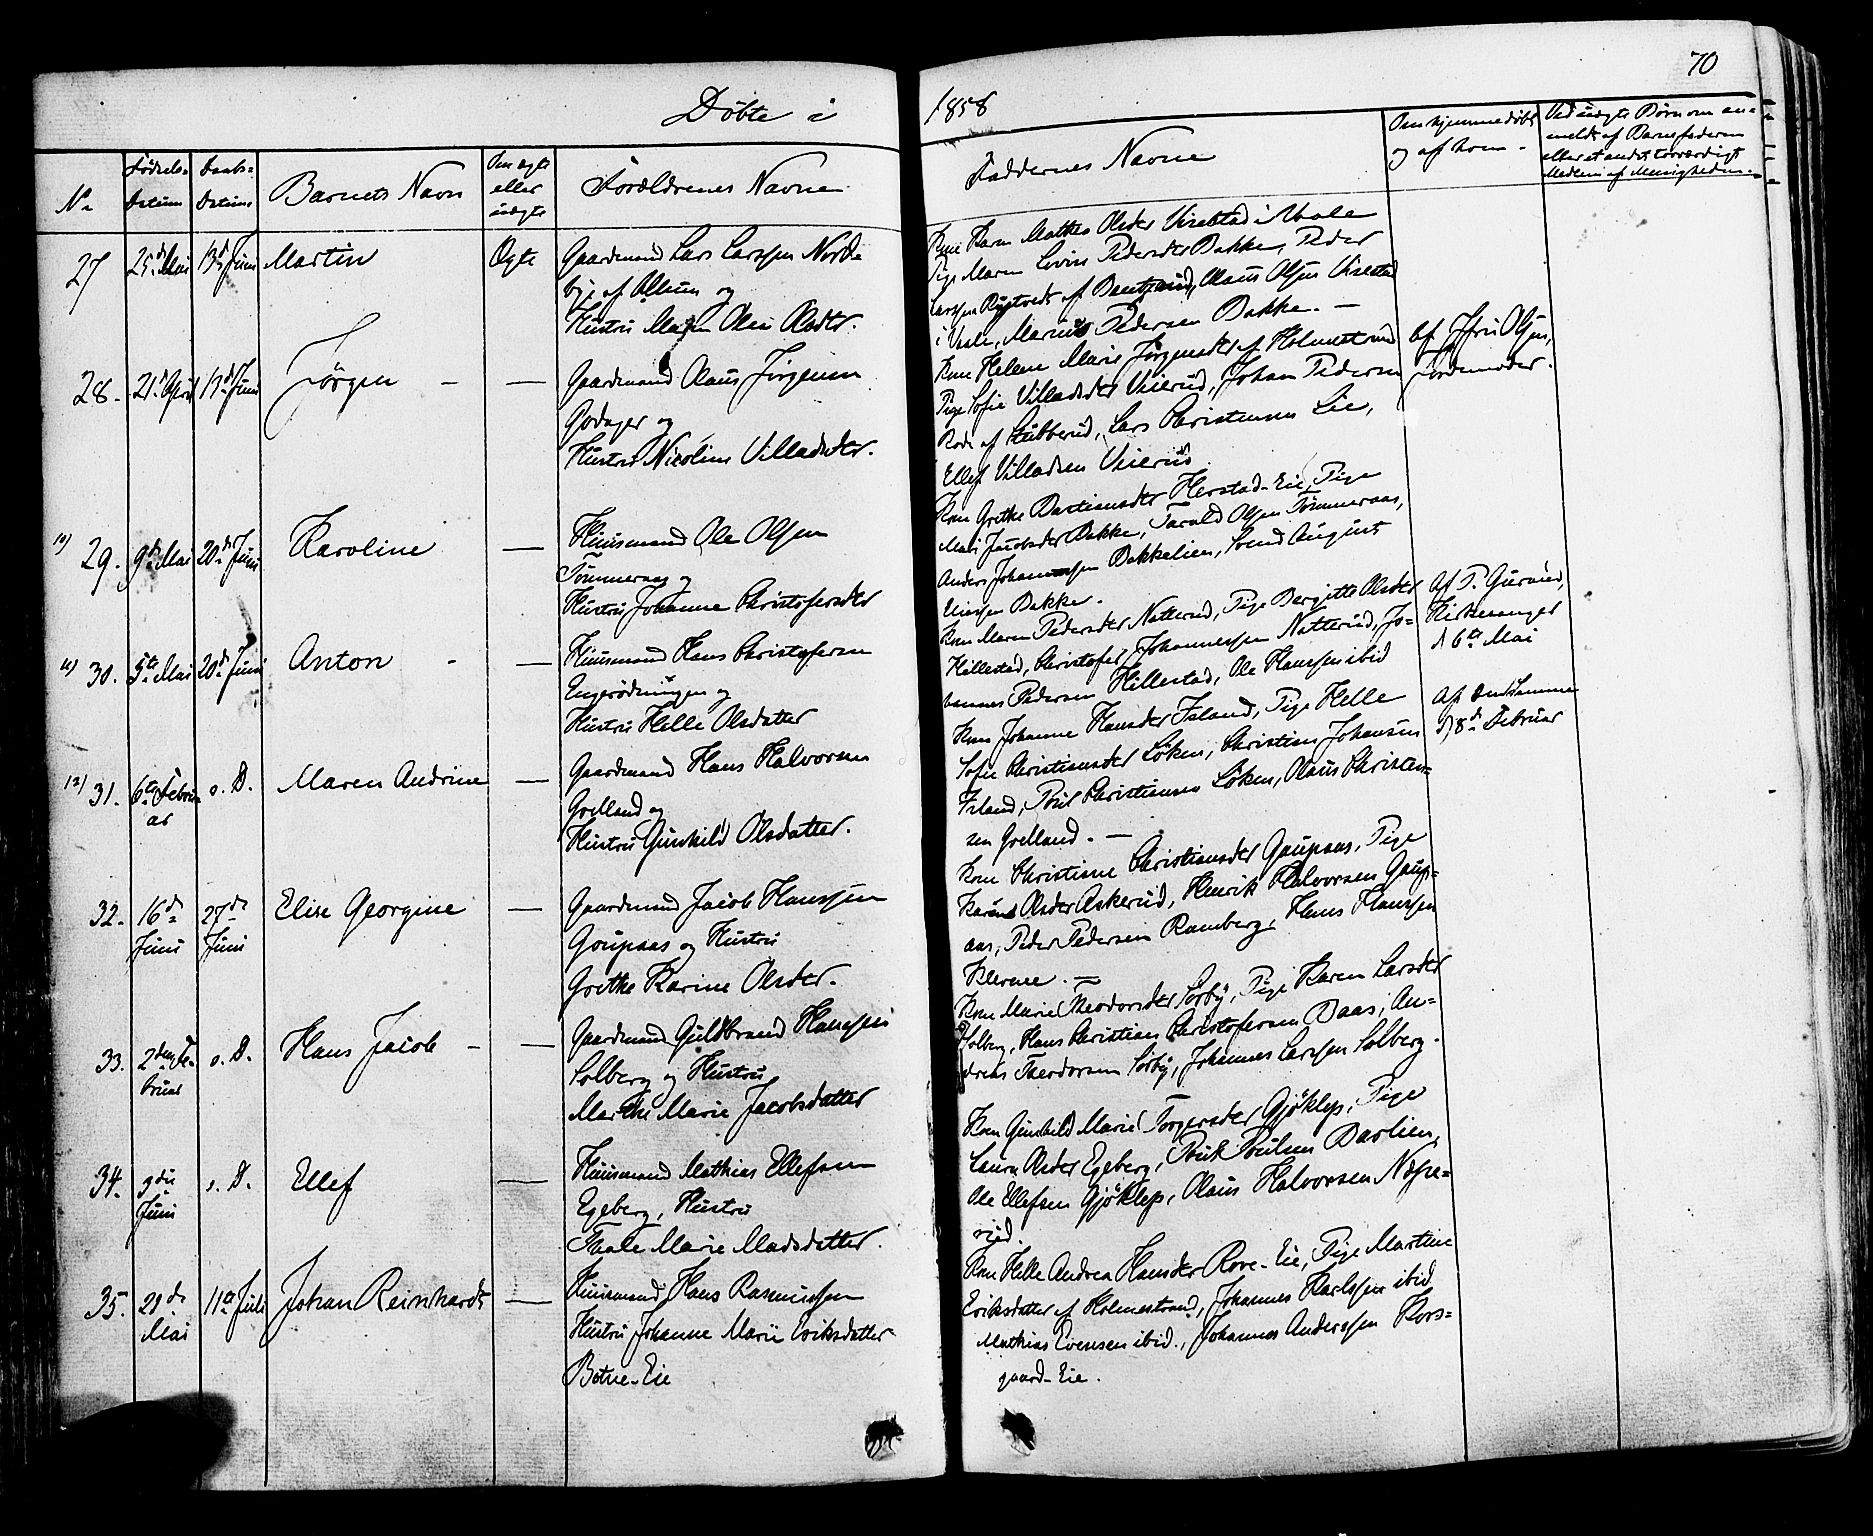 70
Döbte i 1858
No
Fødsels-
Datum
Daabs-
Datum
Barnets Navn
Om ægte
eller
uægte
Forældrenes Navne
Faddernes Navne
Om hjemmedøbt
og af hvem -
Ved uægte Børn om an-
meldt af Barnefaderen
eller et andet troværdigt
Medlem af Menigheden
27
25de Mai
13de Juni
Martin
Ægte
Gaardmand Lars Larssen Nordre
bye af og
Hustru Maren Olea Olsdtr.
Kone Karen Mathea Olsdtr Virestad i Vaale
Pige Maren Lovise Pedersdtr Bakke, Peder
Larssen af Olaus Olsen Virestad
i Vaale, Marius Pedersen Bakke. -
28.
21de April
13de Juni
Jørgen
Gaardmand Olaus Jörgensen
Godager og
Hustru Nicoline Villadsdtr.
Kone Helene Marie Jörgensdtr af Holmestrand
Pige Sofie Villadsdtr Vierud, Johan Pedersen
af Stubberud, Lars Christensen Lie,
Ellef Villadsen Vierud
Af Olsen,
Jordemoder.
10) 29.
9de Mai
20de Juni
Karoline
Huusmand Ole Olsen
Tömmeraas og
Hustru Johanne Christofersdtr
Kone Grethe Bastiansdtr Herstad-Eie, Pige
Mari Jacobsdtr Bakke, Tarald Olsen Tömmeraas,
Anders Johannessen Bakkelien, Svend August
Bakke.
11) 30.
5te Mai
20de Juni
Anton
Huusmand Hans Christofersen
Engerödningen og
Hustru Helle Olsdatter
Kone Maren Pedersdtr Natterud, Pige Bergitte Olsdtr
Hillestad, Christofer Johannessen Natterud, Jo-
hannes Pedersen Hillestad, Ole Hanssen ibid
Af P. Gurand,
Kirkesanger
d 6te Mai
12) 31.
6te Febru-
ar
s. D.
Maren Andrine
Gaardmand Hans Halvorsen
Grelland og
Hustru Gunhild Olsdatter.
Kone Johanne Hansdtr Island, Pige Helle
Sofie Christiansdtr Löken, Christian Johansen
Island, Poul Christiansen Löken, Olaus Christen-
sen Grelland. -
Af den Samme
d 8de Februar
32.
16de
Juni
27de
Juni
Elise Georgine
Gaardmand Jacob Hanssen
Goupaas og Hustru
Grethe Karine Olsdtr.
Kone Christine Christiansdtr Gaupaas, Pige
Karen Olsdtr Askerud, Henrik Halvorsen Gaup-
aas, Peder Pedersen Ramberg, Hans Hanssen
Klevene. -
33.
2den Fe-
bruar
s. D.
Hans Jacob
Gaardmand Guldbrand Hanssen
Solberg og Hustru
Marthe Marie Jacobsdatter
Kone Marie Theodorsdtr Sörby, Pige Karen Larsdtr
Solberg, Hans Christian Christofersen Baas, An-
dreas Theodorsen Sörby, Johannes Larssen Solberg.
34.
3die
Juni
s. D.
Ellef
Huusmand Mathias Ellefsen
Egeberg, Hustru
Thale Marie Madsdatter.
Kone Gunhild Marie Torgersdtr Gjöklep, Pige
Laura Olsdtr Egeberg, Poulsen Barlien,
Ole Ellefsen Gjöklep, Olaus Halvorsen Næpe-
rød.
35.
29de
Mai
11te Juli
Johan Reinhardt
Huusmand Hans Rasmussen
Hustru Johanne Marie Eriksdatter
Botne-Eie
Kone Helle Andrea Hansdtr Rove-Eie, Pige Martine
Eriksdatter af Holmestrand, Johannes Karlssen ibid
Mathias Evensen ibid., Johannes Anderssen Kors-
gaard-Eie.